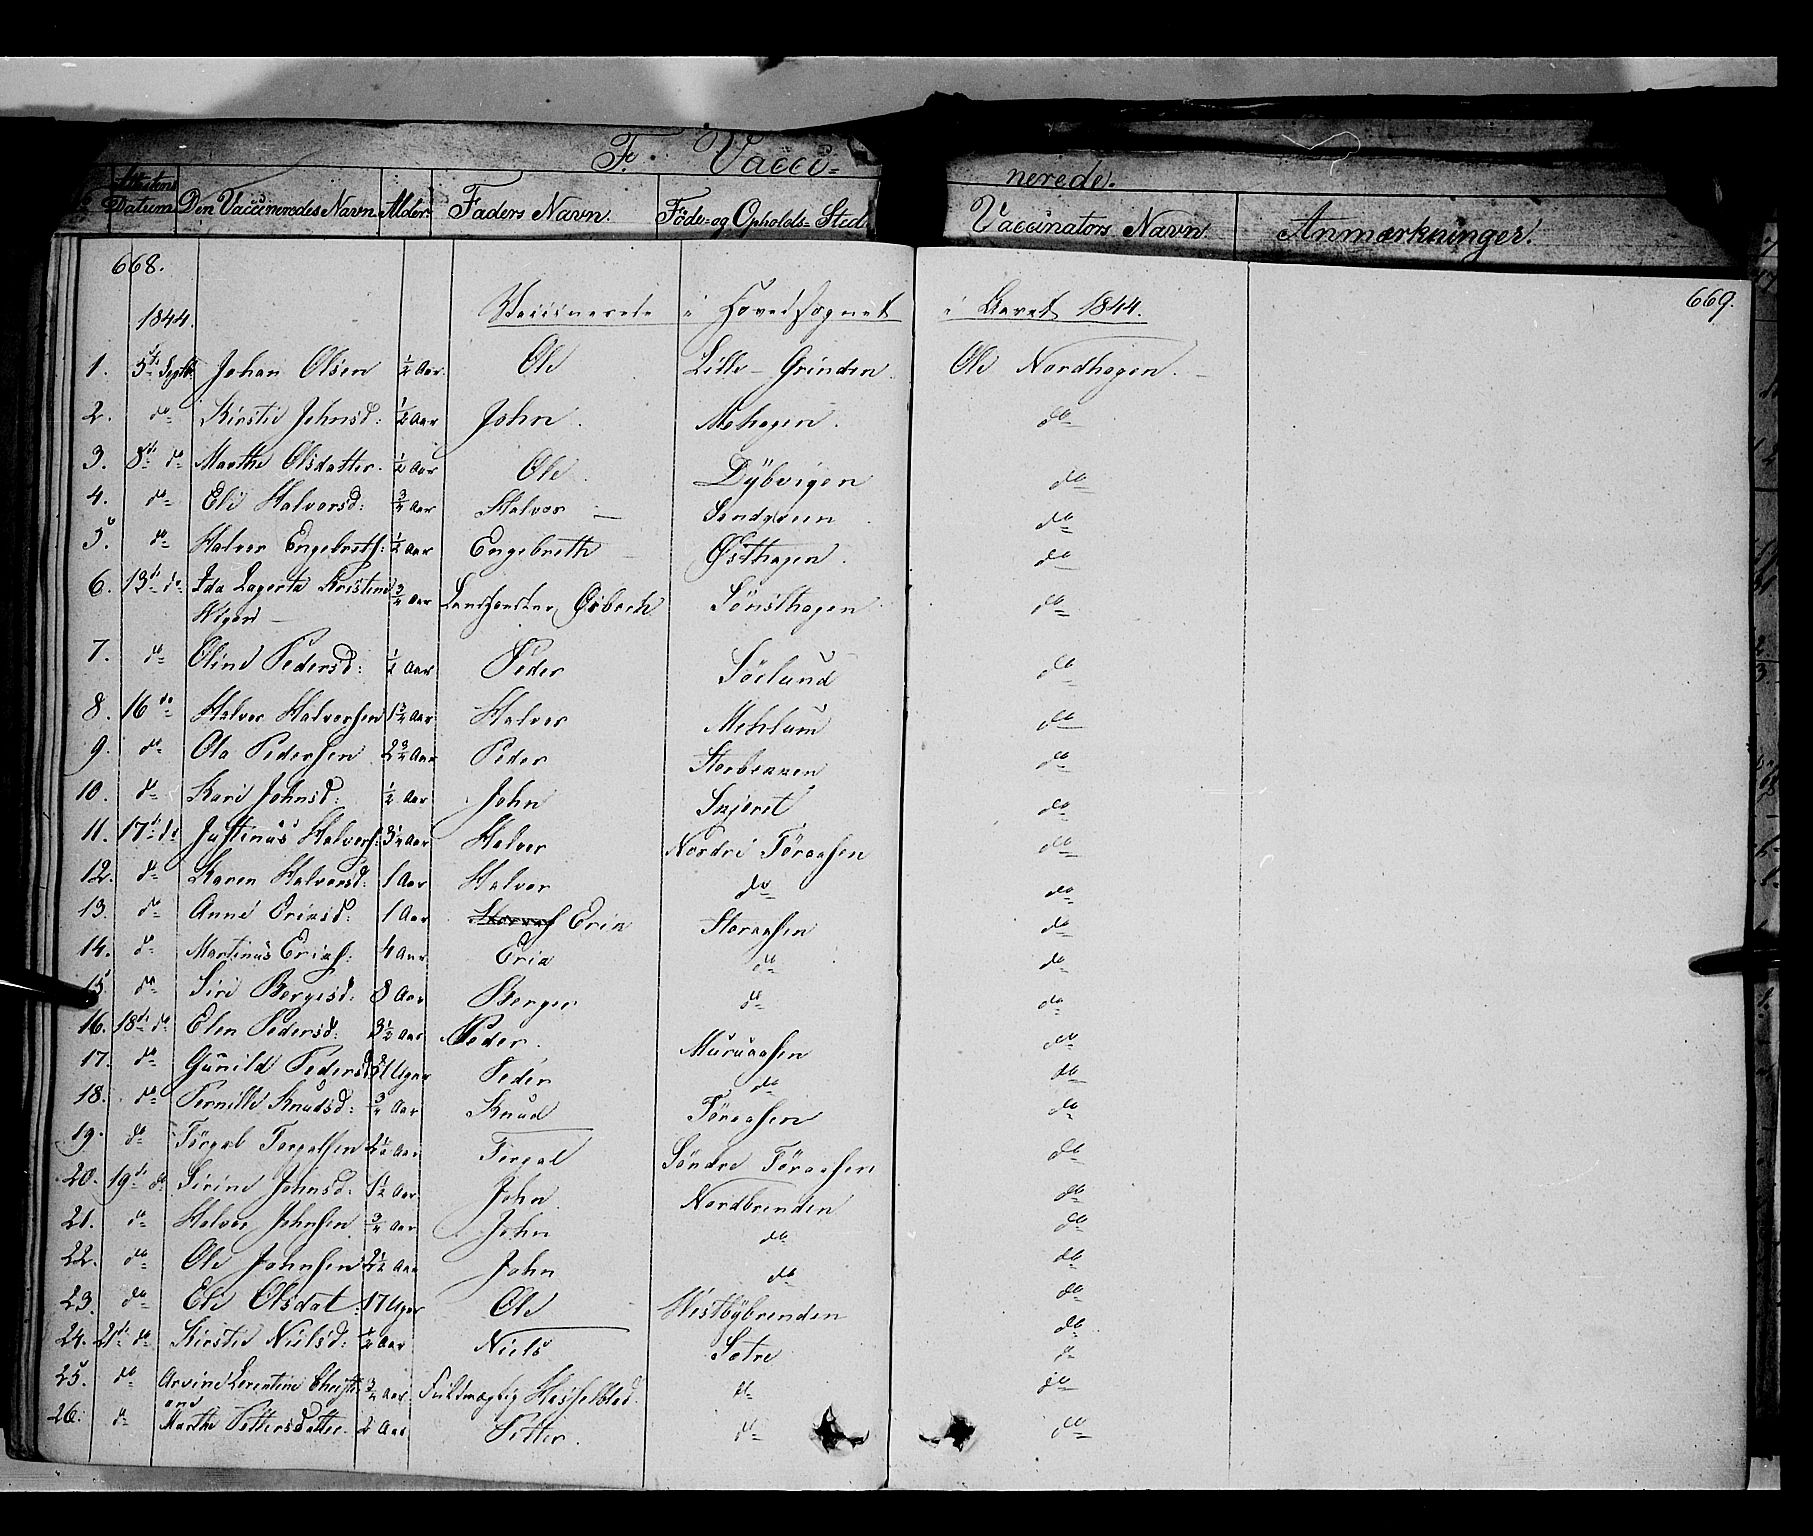 F. Vacci-
nerede.
Attestens Datum. Den Vaccineredes Navn. Alder. Faders Navn. Föde- og Opholds-Sted. Vaccinators Navn. Anmærkninger.
668.
669.
1844. Vaccinerede i Hovedsognet i Aaret 1844.
1. 5te Septbr Johan Olsen ½ Aar Ole Lille-Grinden Ole Nordhagen.
2. do Kirstie Johnsd: ½ Aar John. Mehagen. do
3. 8de do Marthe Olsdatter. ½ Aar Ole. Dÿbvigen do
4. do Eli Halvorsd: ¾ Aar Halvor do
5. do Halvor Engebrets: ½ Aar Engebreth Østhagen. do
6. 13de do Ida Lagerta Kristine ¾ Aar Landhandler Sönsthagen do
7. do Oline Pedersd: ½ Aar Peder Söelund do
8. 16 do Halvor Halvorsen 1¾ Aar Halvor Mehlum do
9. do Ola Pedersen 2¾ Aar Peder do
10. do Kari Johnsd: ½ Aar John do
11. 17de do Justinus Halvors: 3½ Aar Halvor Nordre Töraasen do
12. do Karen Halvorsd: 1 Aar Halvor do do
13. do Anne Ericsd: 1 Aar Eric Storaasen do
14. do Martinus Erics: 4 Aar Eric do do
15. do Siri Bergesd: 8 Aar Berger do do
16. 18de do Elen Pedersd: 3½ Aar Peder. Muruaasen do
17. do Gunild Pedersd Uger Peder do do
18. do Pernille Knudsd: ¾ Aar Knud Töraasen do
19. do 2½ Aar Söndre Töraasen do
20. 19de do Sirine Johnsd: 1½ Aar John Nordbrenden do
21. do Halvor Johnsen ¾ Aar John do do
22. do Ole Johnsen 2½ Aar John do do
23. do Eli Olsdat: 17 Uger Ole Westbÿbrenden do
24. 21de do Kirstie Nielsd: ½ Aar Niels Sotre do
25. do ¾ Aar Fuldmægtig Hasselblad. do do
26. do Marthe Pettersdatter. 2 Aar Petter. do do